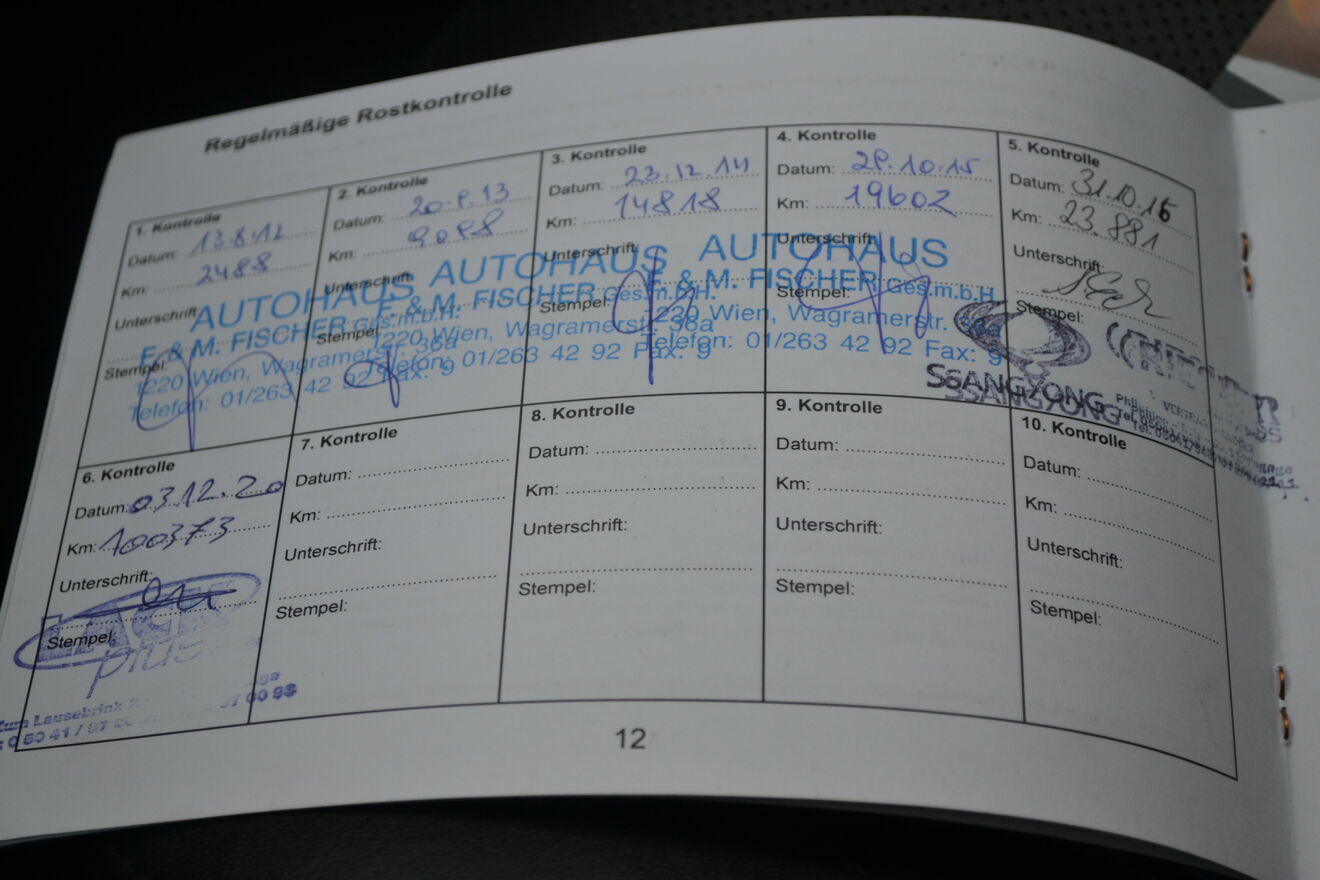 Regelmäßige Rostkontrolle
1. Kontrolle
Datum: 13.8.12
Km: 2488
Unterschrift:
Stempel:
AUTOHAUS
F. & M. FISCHER Ges.m.b.H.
1220 Wien, Wagramerstr. 36a
Telefon: 01/263 42 92 Fax: 9
2. Kontrolle
Datum: 20.8.13
Km:
Unterschrift:
Stempel:
AUTOHAUS
F. & M. FISCHER Ges.m.b.H.
1220 Wien, Wagramerstr. 36a
Telefon: 01/263 42 92 Fax: 9
3. Kontrolle
Datum: 23.12.14
Km: 14818
Unterschrift:
Stempel:
AUTOHAUS
F. & M. FISCHER Ges.m.b.H.
1220 Wien, Wagramerstr. 36a
Telefon: 01/263 42 92 Fax: 9
4. Kontrolle
Datum: 28.10.15
Km: 19602
Unterschrift:
Stempel:
5. Kontrolle
Datum: 31.10.16
Km: 23.881
Unterschrift:
Stempel:
SSANGYONG
6. Kontrolle
Datum: 03.12.20
Km: 100373
Unterschrift:
Stempel:
plus
Zum Lausebrink
0 50 41 / 97 00 98
7. Kontrolle
Datum:
Km:
Unterschrift:
Stempel:
8. Kontrolle
Datum:
Km:
Unterschrift:
Stempel:
9. Kontrolle
Datum:
Km:
Unterschrift:
Stempel:
10. Kontrolle
Datum:
Km:
Unterschrift:
Stempel:
12